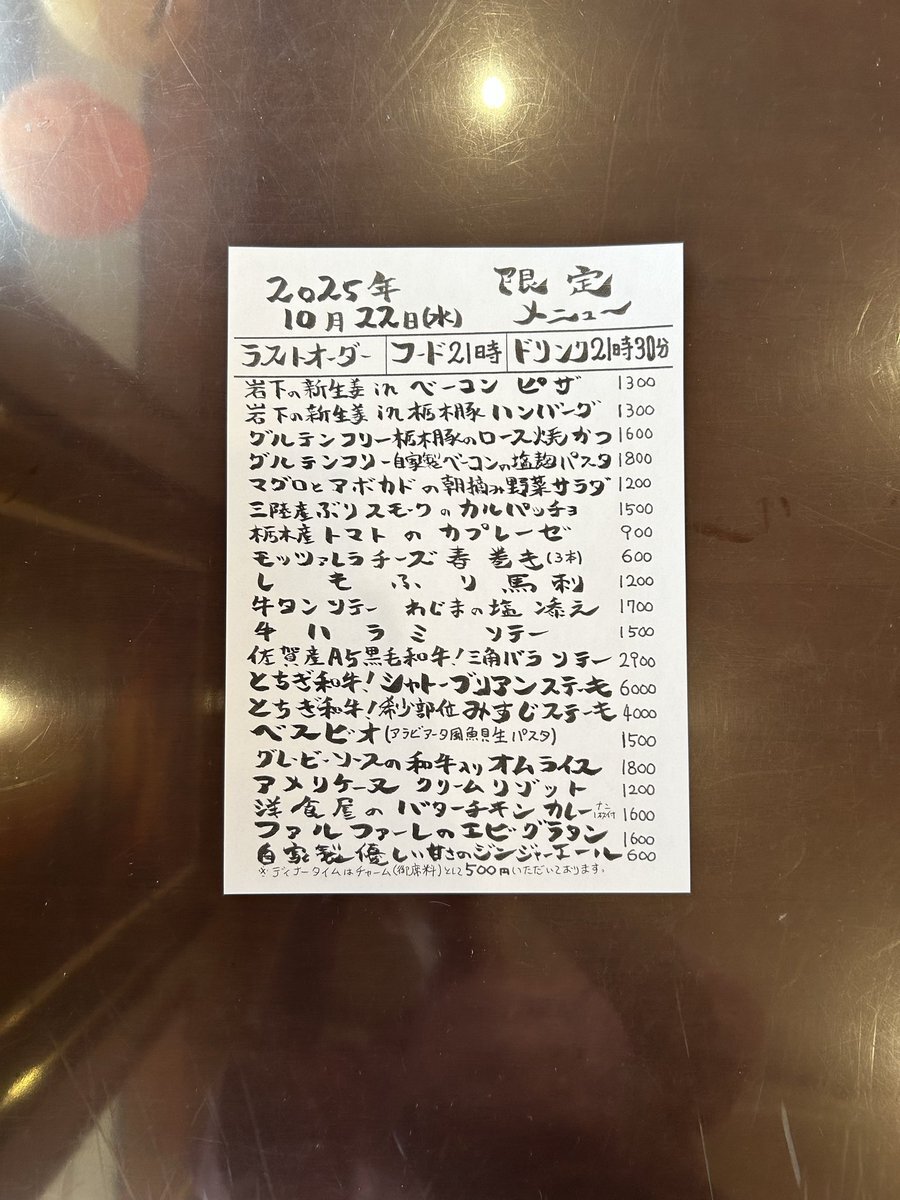 2025年 限定
10月22日(水) メニュー
ラストオーダー フード21時 ドリンク21時30分
岩下の新生姜in ベーコン ピザ 1300
岩下の新生姜in 栃木豚 ハンバーグ 1300
グルテンフリー栃木豚のロース焼かつ 1600
グルテンフリー自家製ベーコンの塩麹パスタ 1800
マグロとアボカドの朝摘み野菜サラダ 1200
三陸産ぶりスモークのカルパッチョ 1500
栃木産トマトのカプレーゼ 900
モッツァレラチーズ春巻き(3本) 600
しもふり馬刺 1200
牛タンソテー わじまの塩 添え 1700
牛ハラミ ソテー 1500
佐賀産A5黒毛和牛!三角バラソテー 2900
とちぎ和牛!シャトーブリアンステーキ 6000
とちぎ和牛!希少部位みすじステーキ 4000
ベスビオ(アラビアータ風魚貝生パスタ) 1500
グレービーソースの和牛入りオムライス 1800
アメリケーヌ クリームリゾット 1200
洋食屋のバターチキンカレー 1600
ファルファーレのエビグラタン 1600
自家製優しい甘さのジンジャーエール 600
※ディナータイムはチャーム(御席料)として500円いただいております。